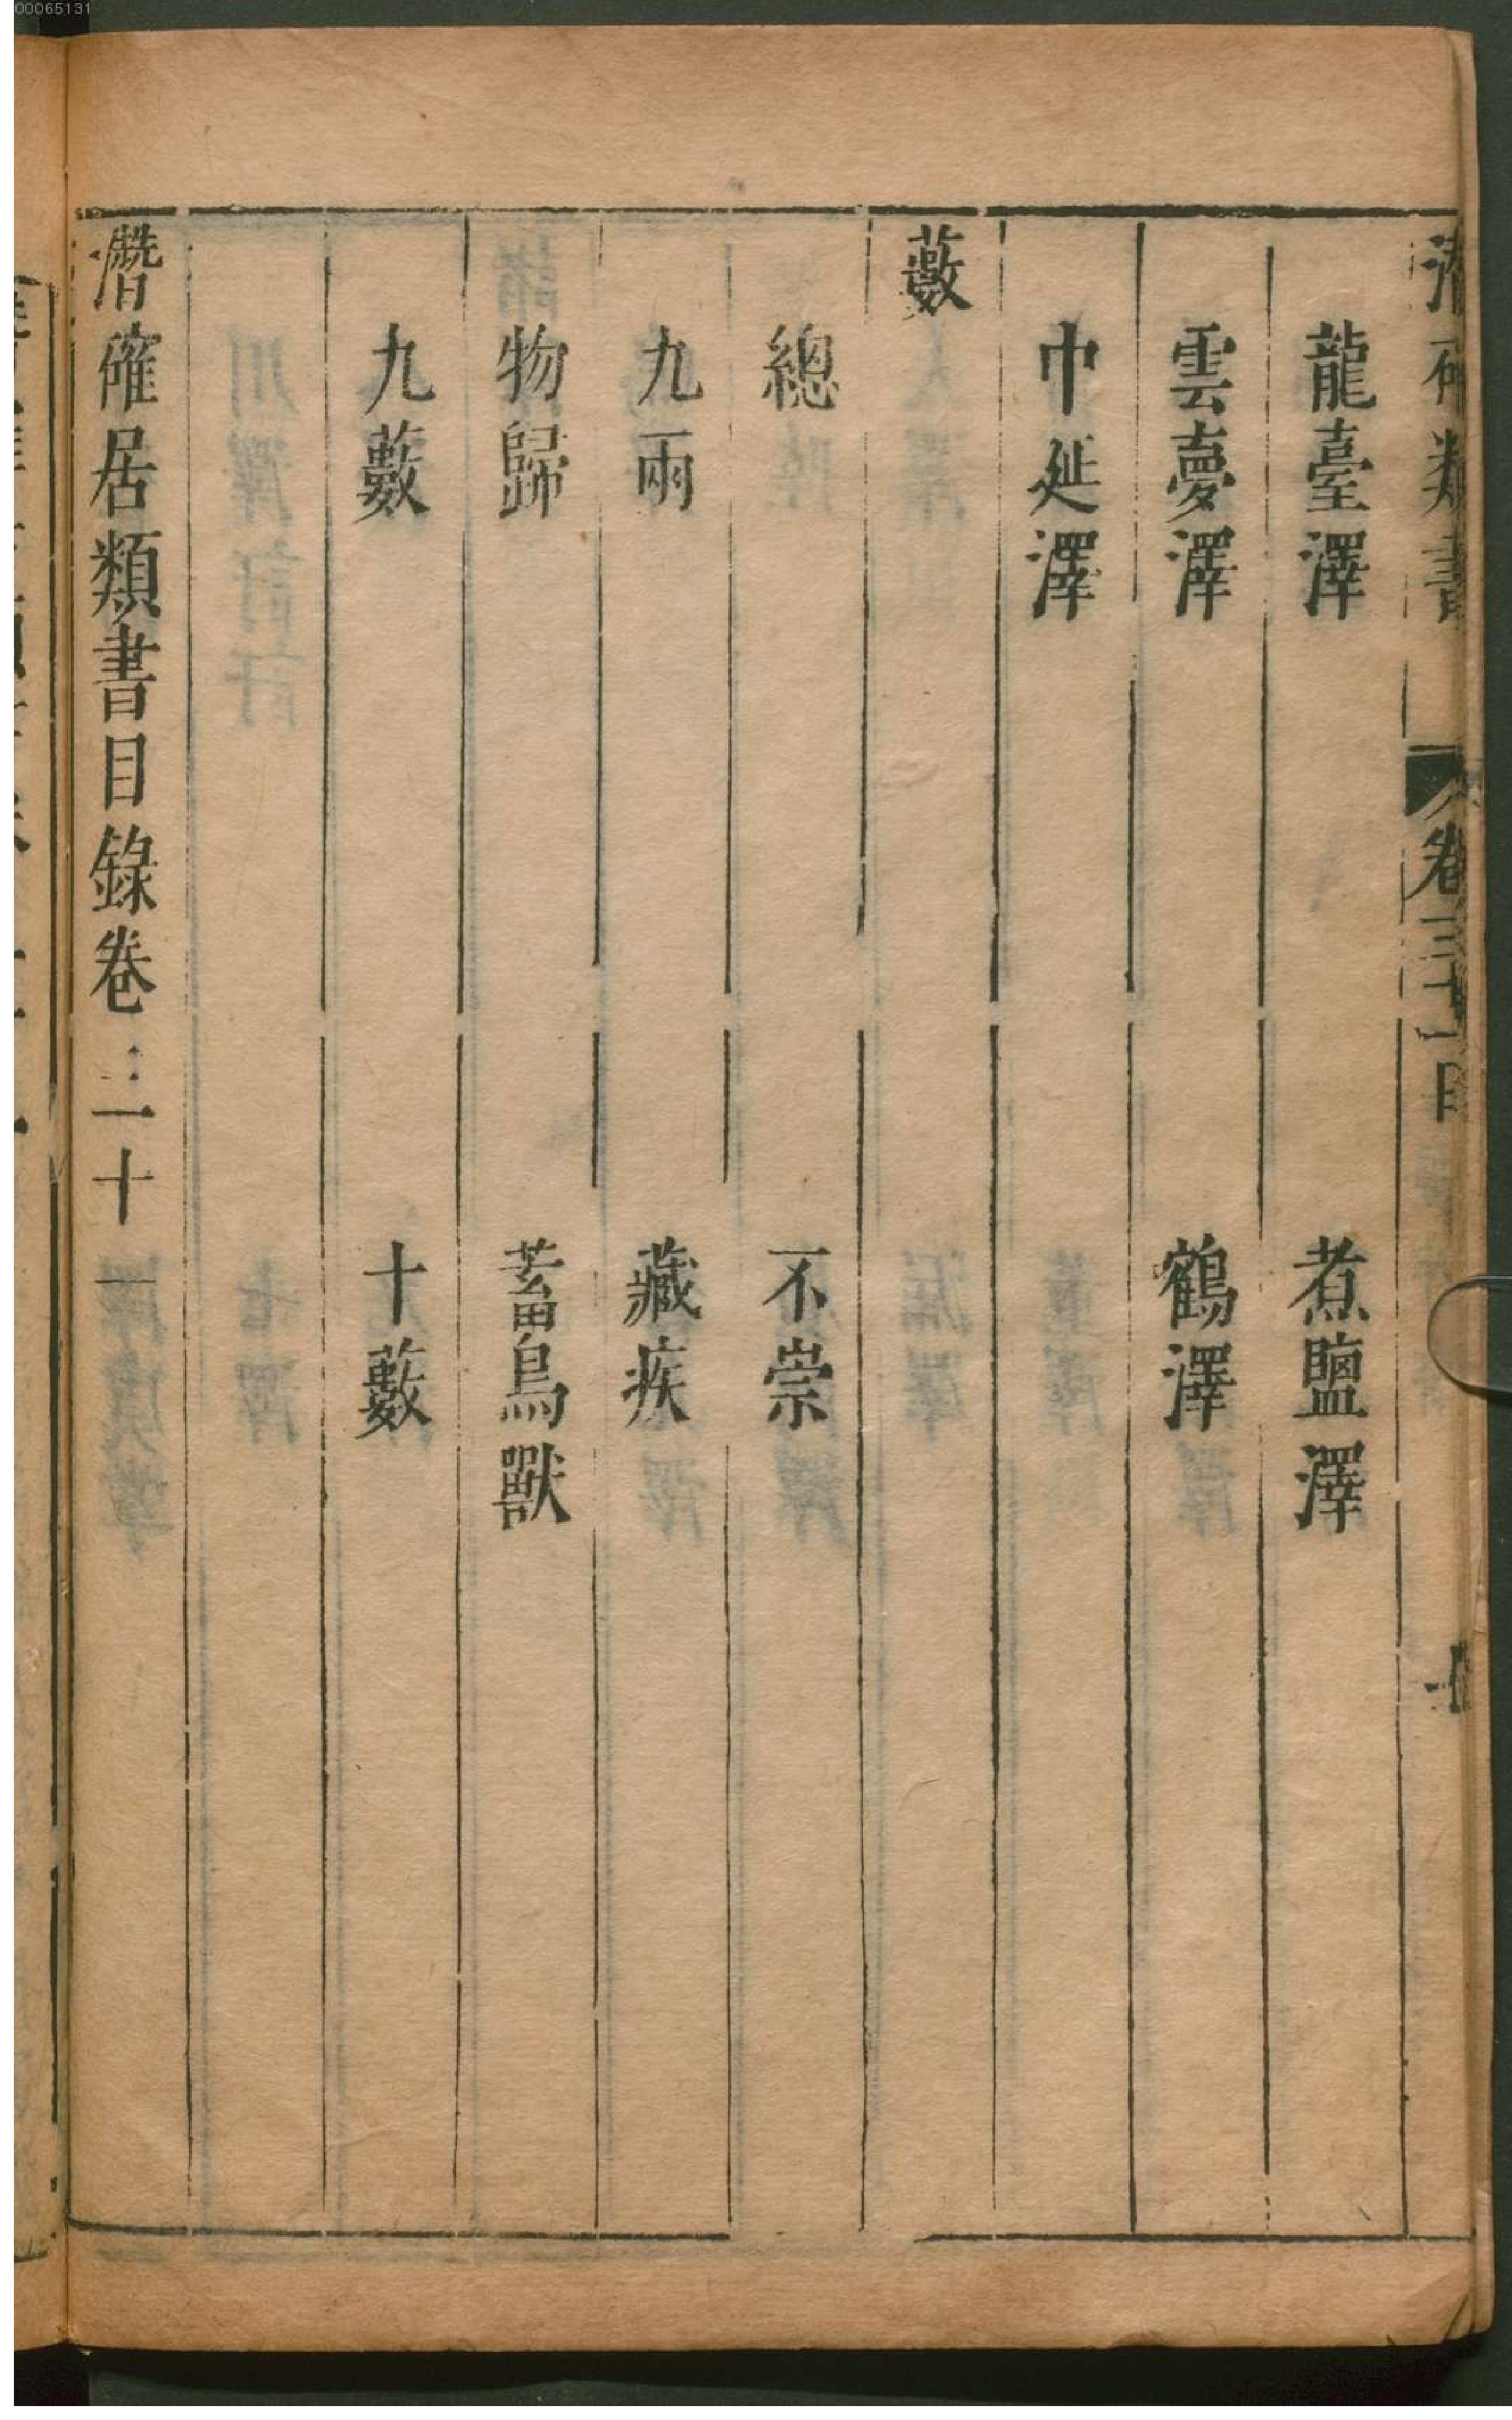 00065131
潛確類書 卷三十一目
龍臺澤 煮鹽澤
雲夢澤 鶴澤
中延澤
藪
總 不崇
九兩 藏疾
物歸 蓄鳥獸
九藪 十藪
潛確居類書目錄卷三十一